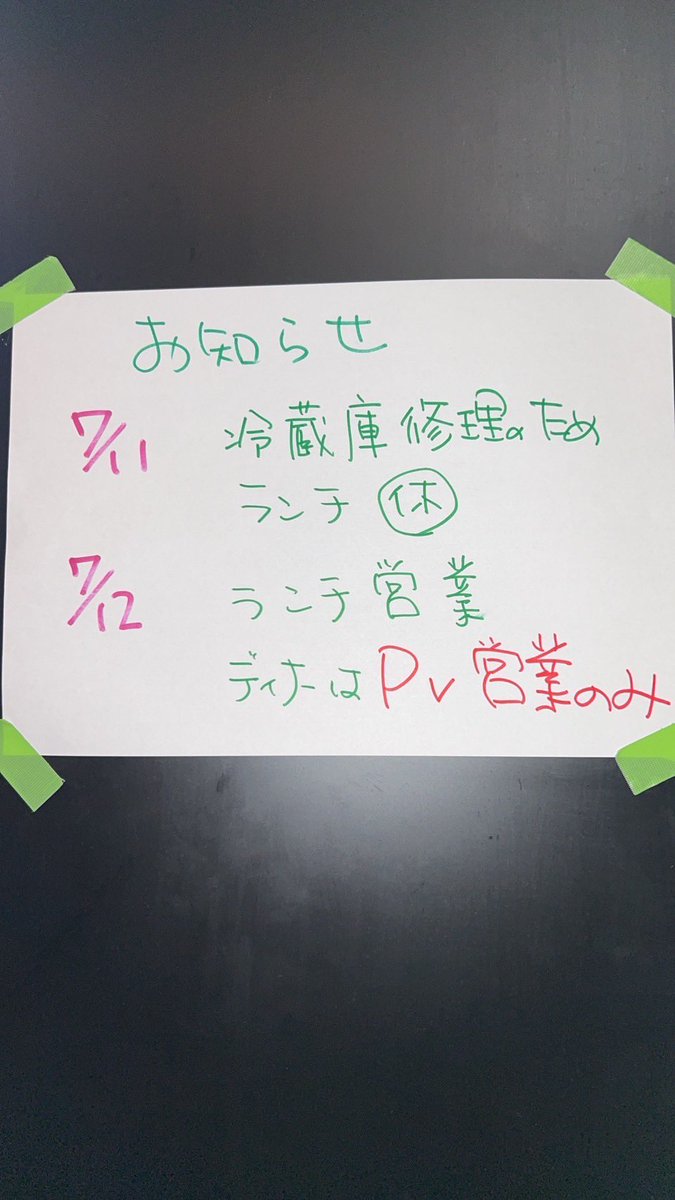 お知らせ
7/11 冷蔵庫修理のため
ランチ 休
7/12 ランチ営業
ディナーはPv営業のみ